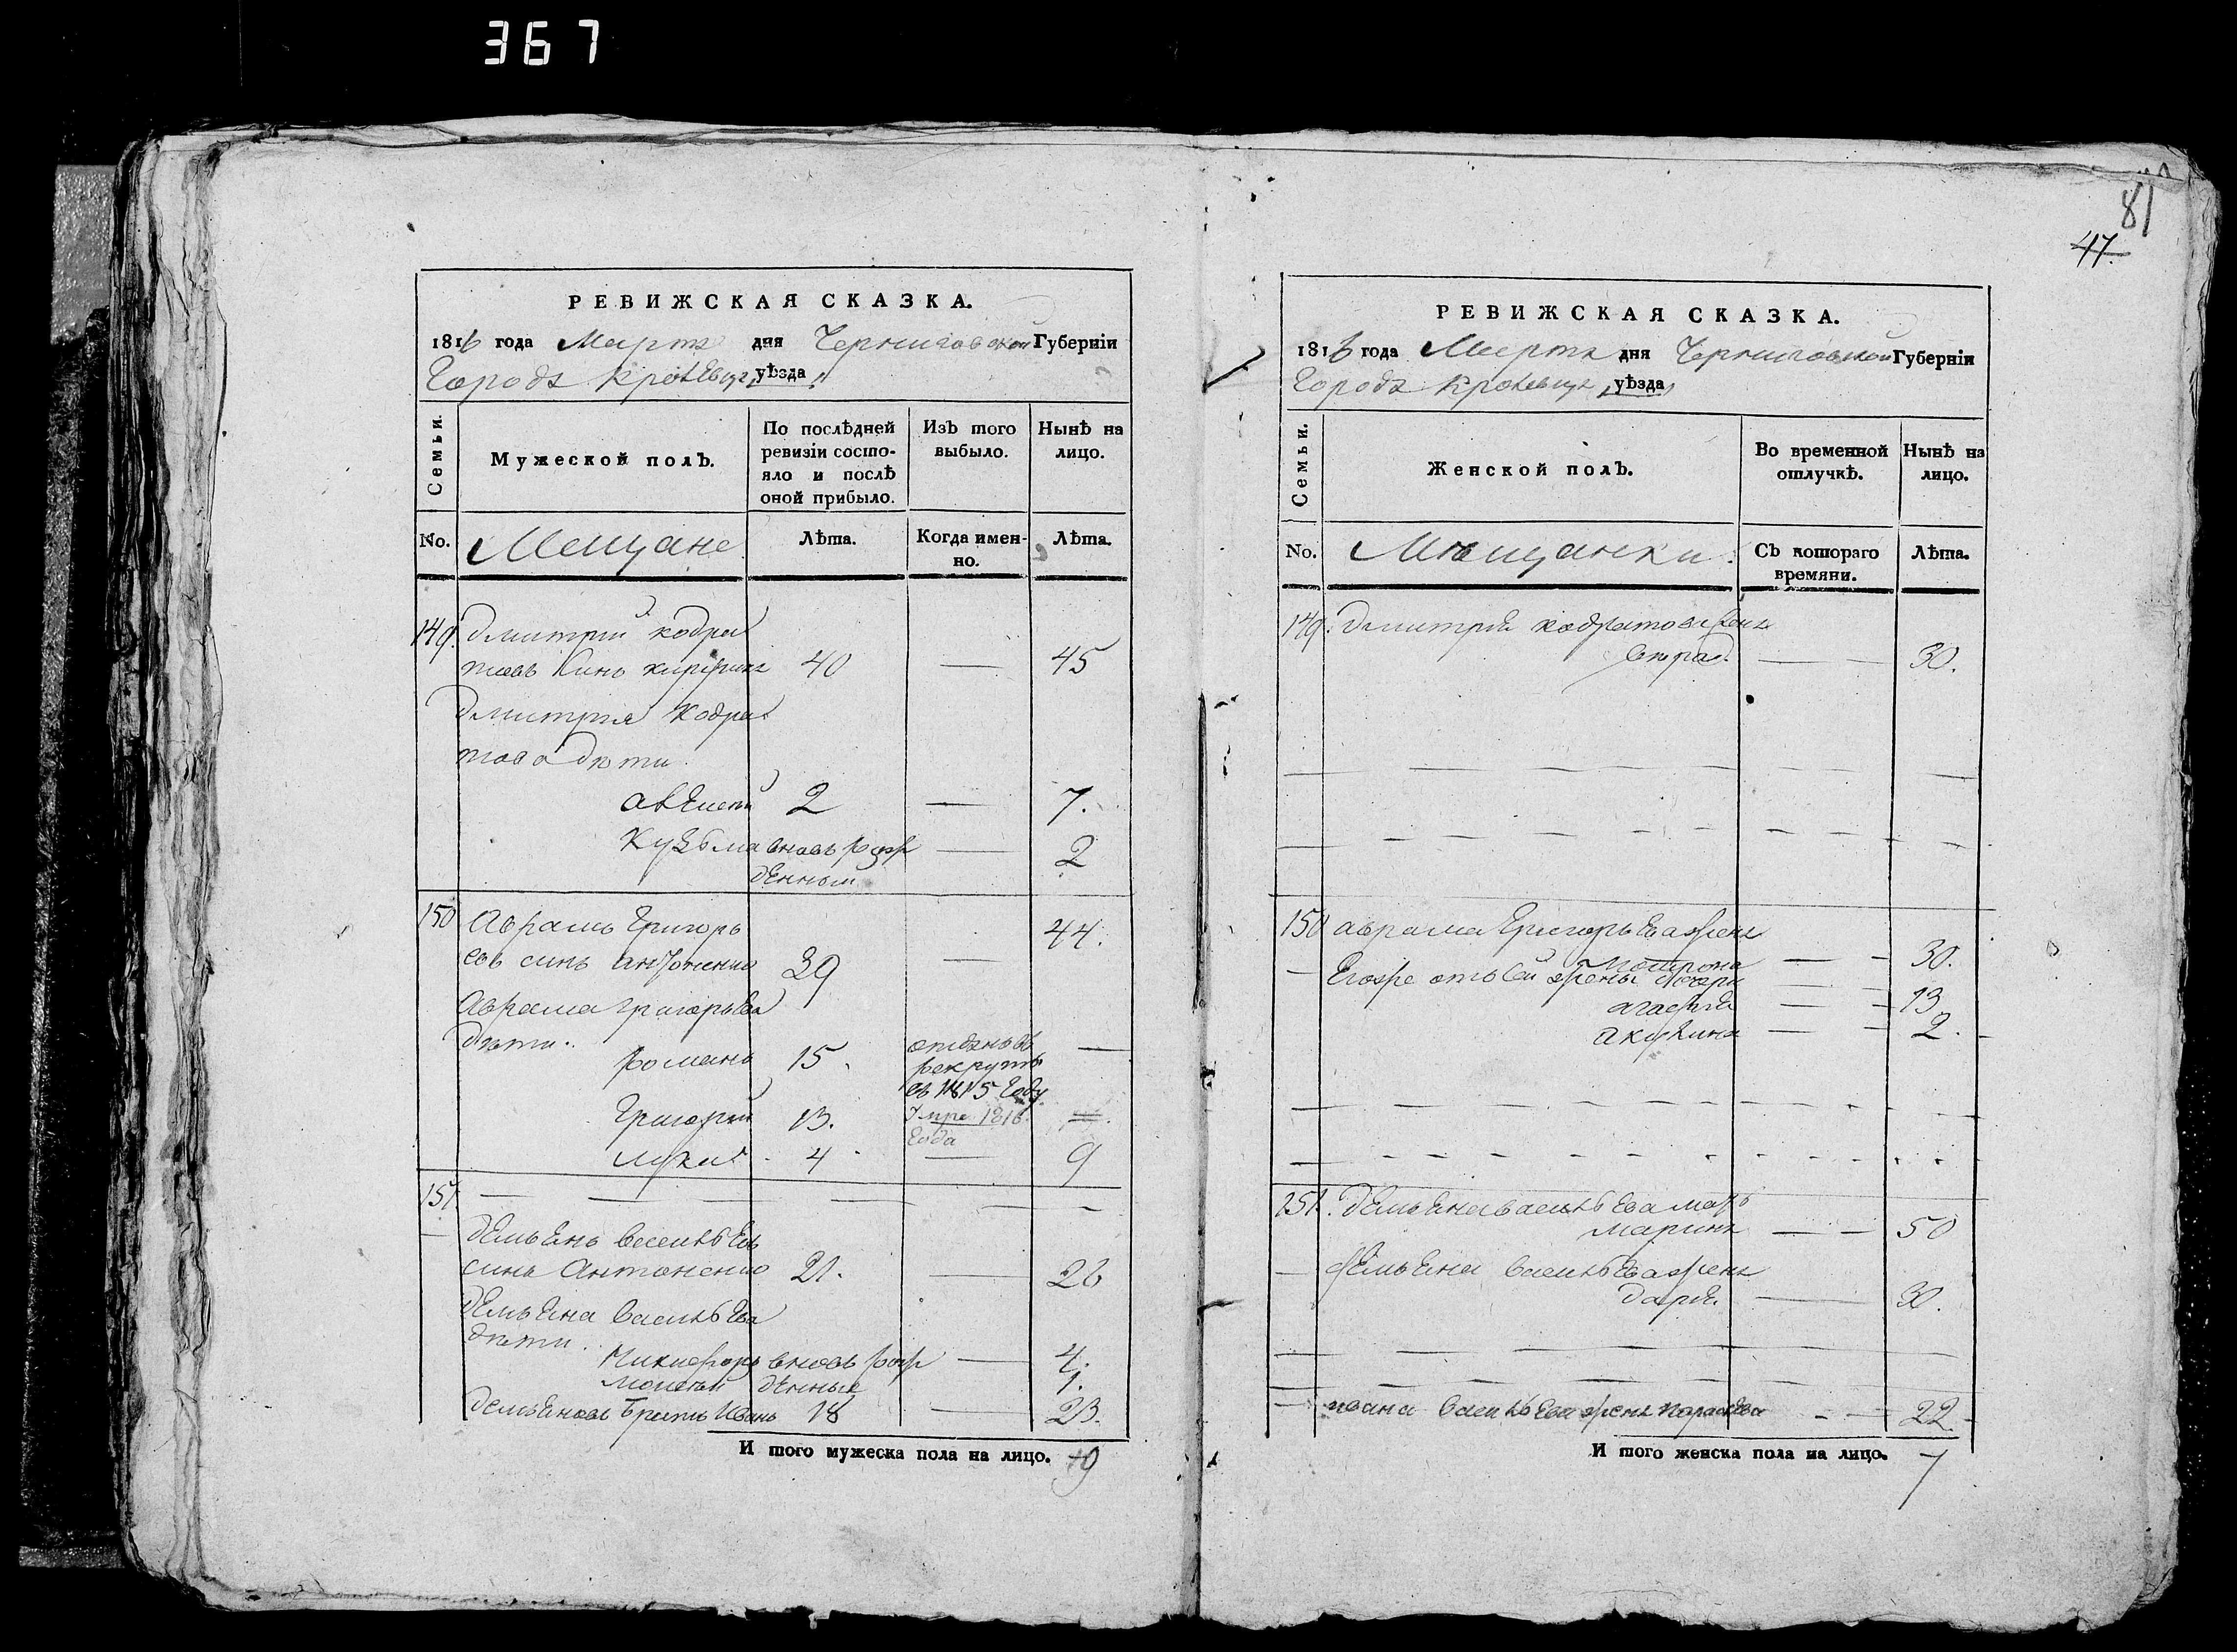 367
81
47.
РЕВИЖСКАЯ СКАЗКА.
1816 года Марта дня Черниговской Губернїи
Города Кролевца уѣзда
Семьи.
Мужеской полъ.
По послѣдней ревизїи состояло и послѣ оной прибыло.
Изъ того выбыло.
Нынѣ на лицо.
No.
Мещане
Лѣта.
Когда именно.
Лѣта.
149. Дмитрий кодра
товъ синъ 40 — 45
Дмитрия Кодра
това дѣти
алексей 2 — 7.
Кузьма вновь рож — 2
денный
150 Аврамъ Григорь
евъ синъ антоненко 39 — 44.
Аврама григорьева
дѣти.
романъ 15. отданъ въ —
рекруты
въ 1815 году
Григорий 13. Умре 1816
года
лука 4 — 9
151
демьянъ васильевъ
синъ Антоненко 21. — 26
демьяна васильева
дѣти.
Никифоръ вновь рож — 4.
моисей денные 1.
демьяновъ братъ иванъ 18 — 23.
И того мужеска пола на лицо. 9
РЕВИЖСКАЯ СКАЗКА.
1816 года Марта дня Черниговской Губернїи
Города Кролевца уѣзда
Семьи.
Женской полъ.
Во временной отлучкѣ.
Нынѣ на лицо.
No.
Мѣщанки.
Съ котораго времяни.
Лѣта.
149. Дмитрия кодратова жена
— 30.
150 аврама григорьева жена
— 30.
Егоже отъ сей жены дочери
агафия — 13
акулина — 2.
151. демьяна васильева мать
марина — 50
демьяна васильева жена
дария — 30.
ивана васильева жена параскева — 22
И того женска пола на лицо. 7